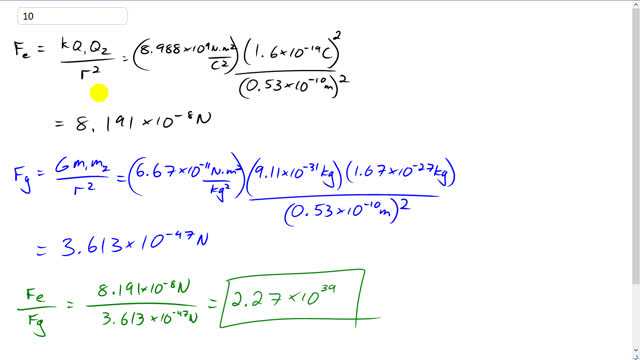 10
Fe = kQ1Q2/r² = (8.988×10⁹ N·m²/C²) (1.6×10⁻¹⁹C)²/(0.53×10⁻¹⁰m)²
= 8.191×10⁻⁸N
Fg = Gm1m2/r² = (6.67×10⁻¹¹ N·m²/kg²) (9.11×10⁻³¹kg)(1.67×10⁻²⁷kg)/(0.53×10⁻¹⁰m)²
= 3.613×10⁻⁴⁷N
Fe/Fg = 8.191×10⁻⁸N/3.613×10⁻⁴⁷N = 2.27×10³⁹